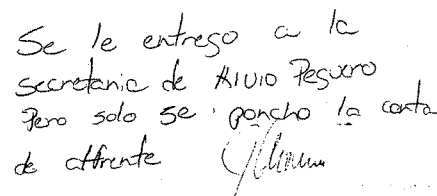 Se le entrego a la
secretaria de Alvio Peguero
Pero solo se poncho la carta
de alfrente